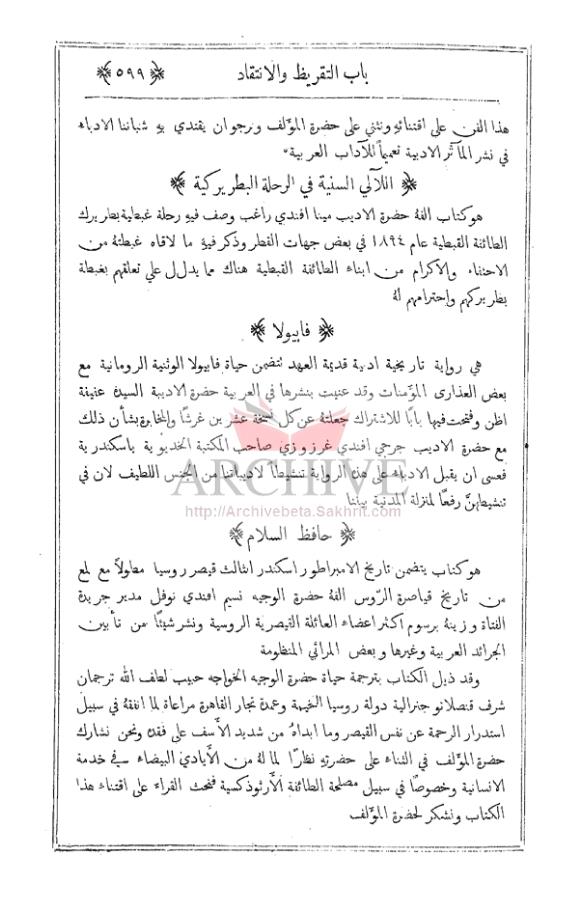 باب التقريظ والانتقاد ﴿٥٩٩﴾
هذا الفن على اقتنائهِ ونثني على حضرة المؤلف ونرجو ان يقتدي بهِ شباننا الادباء
في نشر المآثر الادبية تعميماً للآداب العربية
﴿ اللآلي السنية في الرحلة البطريركية ﴾
هو كتاب الفهُ حضرة الاديب مينا افندي راغب وصف فيهِ رحلة غبطة بطريرك
الطائفة القبطية عام ١٨٩٤ في بعض جهات القطر وذكر فيهِ ما لاقاه غبطتهُ من
الاحتفاء والاكرام من ابناء الطائفة القبطية هناك مما يدلل على تعلقهم بغبطة
بطريركهم واحترامهم لهُ
﴿ فابيولا ﴾
هي رواية تاريخية ادبية قديمة العهد تتضمن حياة فابيولا الوثنية الرومانية مع
بعض العذارى المؤمنات وقد عنيت بنشرها في العربية حضرة الاديبة السيدة عفيفة
اظن وفتحت فيها بابًا للاشتراك جعلتهُ عن كل نسخة عشرين غرشًا والمخابرة بشأن ذلك
مع حضرة الاديب جرجي افندي غرزوزي صاحب المكتبة الخديوية باسكندرية
فعسى ان يقبل الادباء على هذه الرواية تنشيطاً لاديباتنا من الجنس اللطيف لان في
تنشيطهنَّ رفعًا لمنزلة المدنية بيننا
ARCHIVE
http://Archivebeta.Sakhrit.com
﴿ حافظ السلام ﴾
هو كتاب يتضمن تاريخ الامبراطور اسكندر الثالث قيصر روسيا مطولاً مع لمع
من تاريخ قياصرة الرّوس الفهُ حضرة الوجيه نسيم افندي نوفل مدير جريدة
الفتاة وزينهُ برسوم اكثر اعضاء العائلة القيصرية الروسية ونشر شيئًا من تأبين
الجرائد العربية وغيرها وبعض المراثي المنظومة
وقد ذيل الكتاب بترجمة حياة حضرة الوجيه الخواجه حبيب لطف الله ترجمان
شرف قنصلاتو جنرالية دولة روسيا الفخيمة وعمدة تجار القاهرة مراعاة لما انفقهُ في سبيل
استدرار الرحمة عن نفس القيصر وما ابداهُ من شديد الأسف على فقده ونحن نشارك
حضرة المؤلف في الثناء على حضرتهِ نظرًا لما لهُ من الأيادي البيضاء في خدمة
الانسانية وخصوصًا في سبيل مصلحة الطائفة الأرثوذكسية فنحث القراء على اقتناء هذا
الكتاب ونشكر لحضرة المؤلف